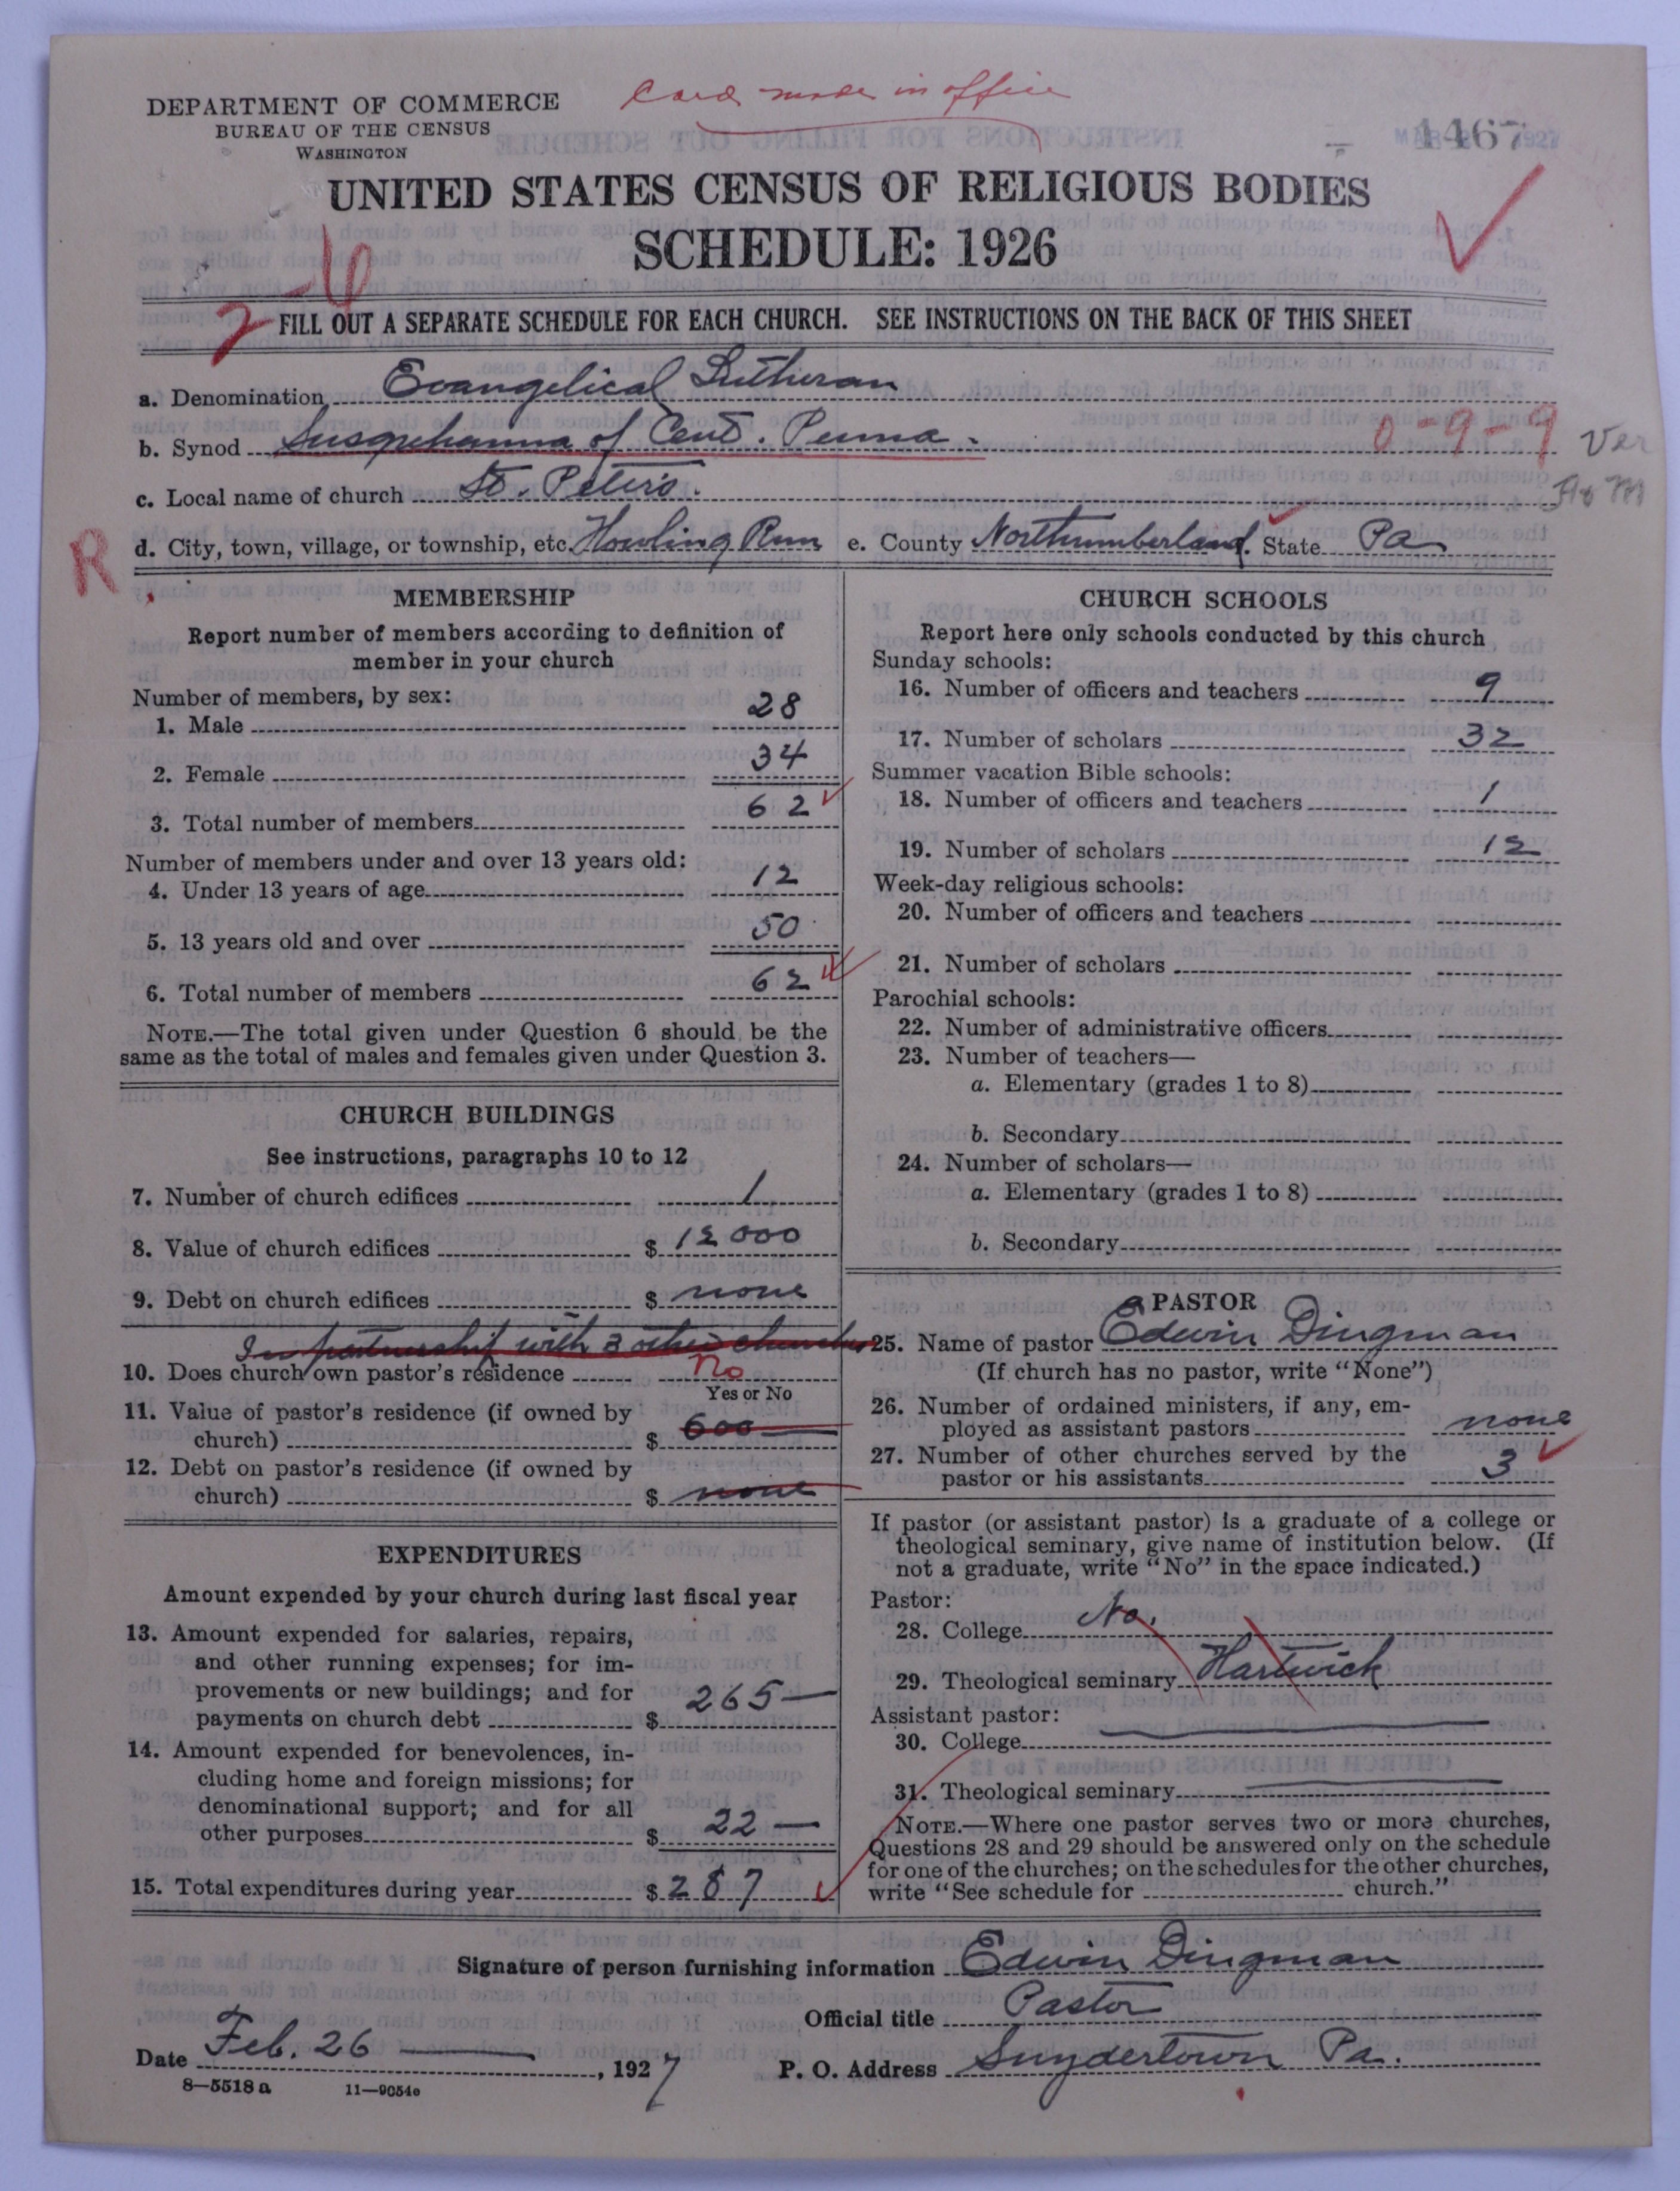 DEPARTMENT OF COMMERCE
BUREAU OF THE CENSUS
WASHINGTON
Card made in office
1467
UNITED STATES CENSUS OF RELIGIOUS BODIES
SCHEDULE: 1926
2-6
FILL OUT A SEPARATE SCHEDULE FOR EACH CHURCH. SEE INSTRUCTIONS ON THE BACK OF THIS SHEET
a. Denomination Evangelical Lutheran
b. Synod Susquehanna of Cent. Penna. 0-9-9 Ver
c. Local name of church St. Peter's.
R
d. City, town, village, or township, etc. Howling Run e. County Northumberland. State Pa
MEMBERSHIP
Report number of members according to definition of
member in your church
Number of members, by sex:
1. Male 28
2. Female 34
3. Total number of members 62
Number of members under and over 13 years old:
4. Under 13 years of age 12
5. 13 years old and over 50
6. Total number of members 62
NOTE.—The total given under Question 6 should be the
same as the total of males and females given under Question 3.
CHURCH BUILDINGS
See instructions, paragraphs 10 to 12
7. Number of church edifices 1
8. Value of church edifices $ 12000
9. Debt on church edifices $ none
In partnership with 3 other churches
10. Does church own pastor's residence No
Yes or No
11. Value of pastor's residence (if owned by
church) $ 600
12. Debt on pastor's residence (if owned by
church) $ none
EXPENDITURES
Amount expended by your church during last fiscal year
13. Amount expended for salaries, repairs,
and other running expenses; for im-
provements or new buildings; and for
payments on church debt $ 265—
14. Amount expended for benevolences, in-
cluding home and foreign missions; for
denominational support; and for all
other purposes $ 22—
15. Total expenditures during year $ 287
CHURCH SCHOOLS
Report here only schools conducted by this church
Sunday schools:
16. Number of officers and teachers 9
17. Number of scholars 32
Summer vacation Bible schools:
18. Number of officers and teachers 1
19. Number of scholars 12
Week-day religious schools:
20. Number of officers and teachers
21. Number of scholars
Parochial schools:
22. Number of administrative officers
23. Number of teachers—
a. Elementary (grades 1 to 8)
b. Secondary
24. Number of scholars—
a. Elementary (grades 1 to 8)
b. Secondary
PASTOR
25. Name of pastor Edwin Dingman
(If church has no pastor, write "None")
26. Number of ordained ministers, if any, em-
ployed as assistant pastors none
27. Number of other churches served by the
pastor or his assistants 3
If pastor (or assistant pastor) is a graduate of a college or
theological seminary, give name of institution below. (If
not a graduate, write "No" in the space indicated.)
Pastor:
28. College No.
29. Theological seminary Hartwick
Assistant pastor:
30. College
31. Theological seminary
NOTE.—Where one pastor serves two or more churches,
Questions 28 and 29 should be answered only on the schedule
for one of the churches; on the schedules for the other churches,
write "See schedule for church."
Signature of person furnishing information Edwin Dingman
Official title Pastor
Date Feb. 26 —, 1927
P. O. Address Snydertown Pa.
8—5518 a 11—9054e